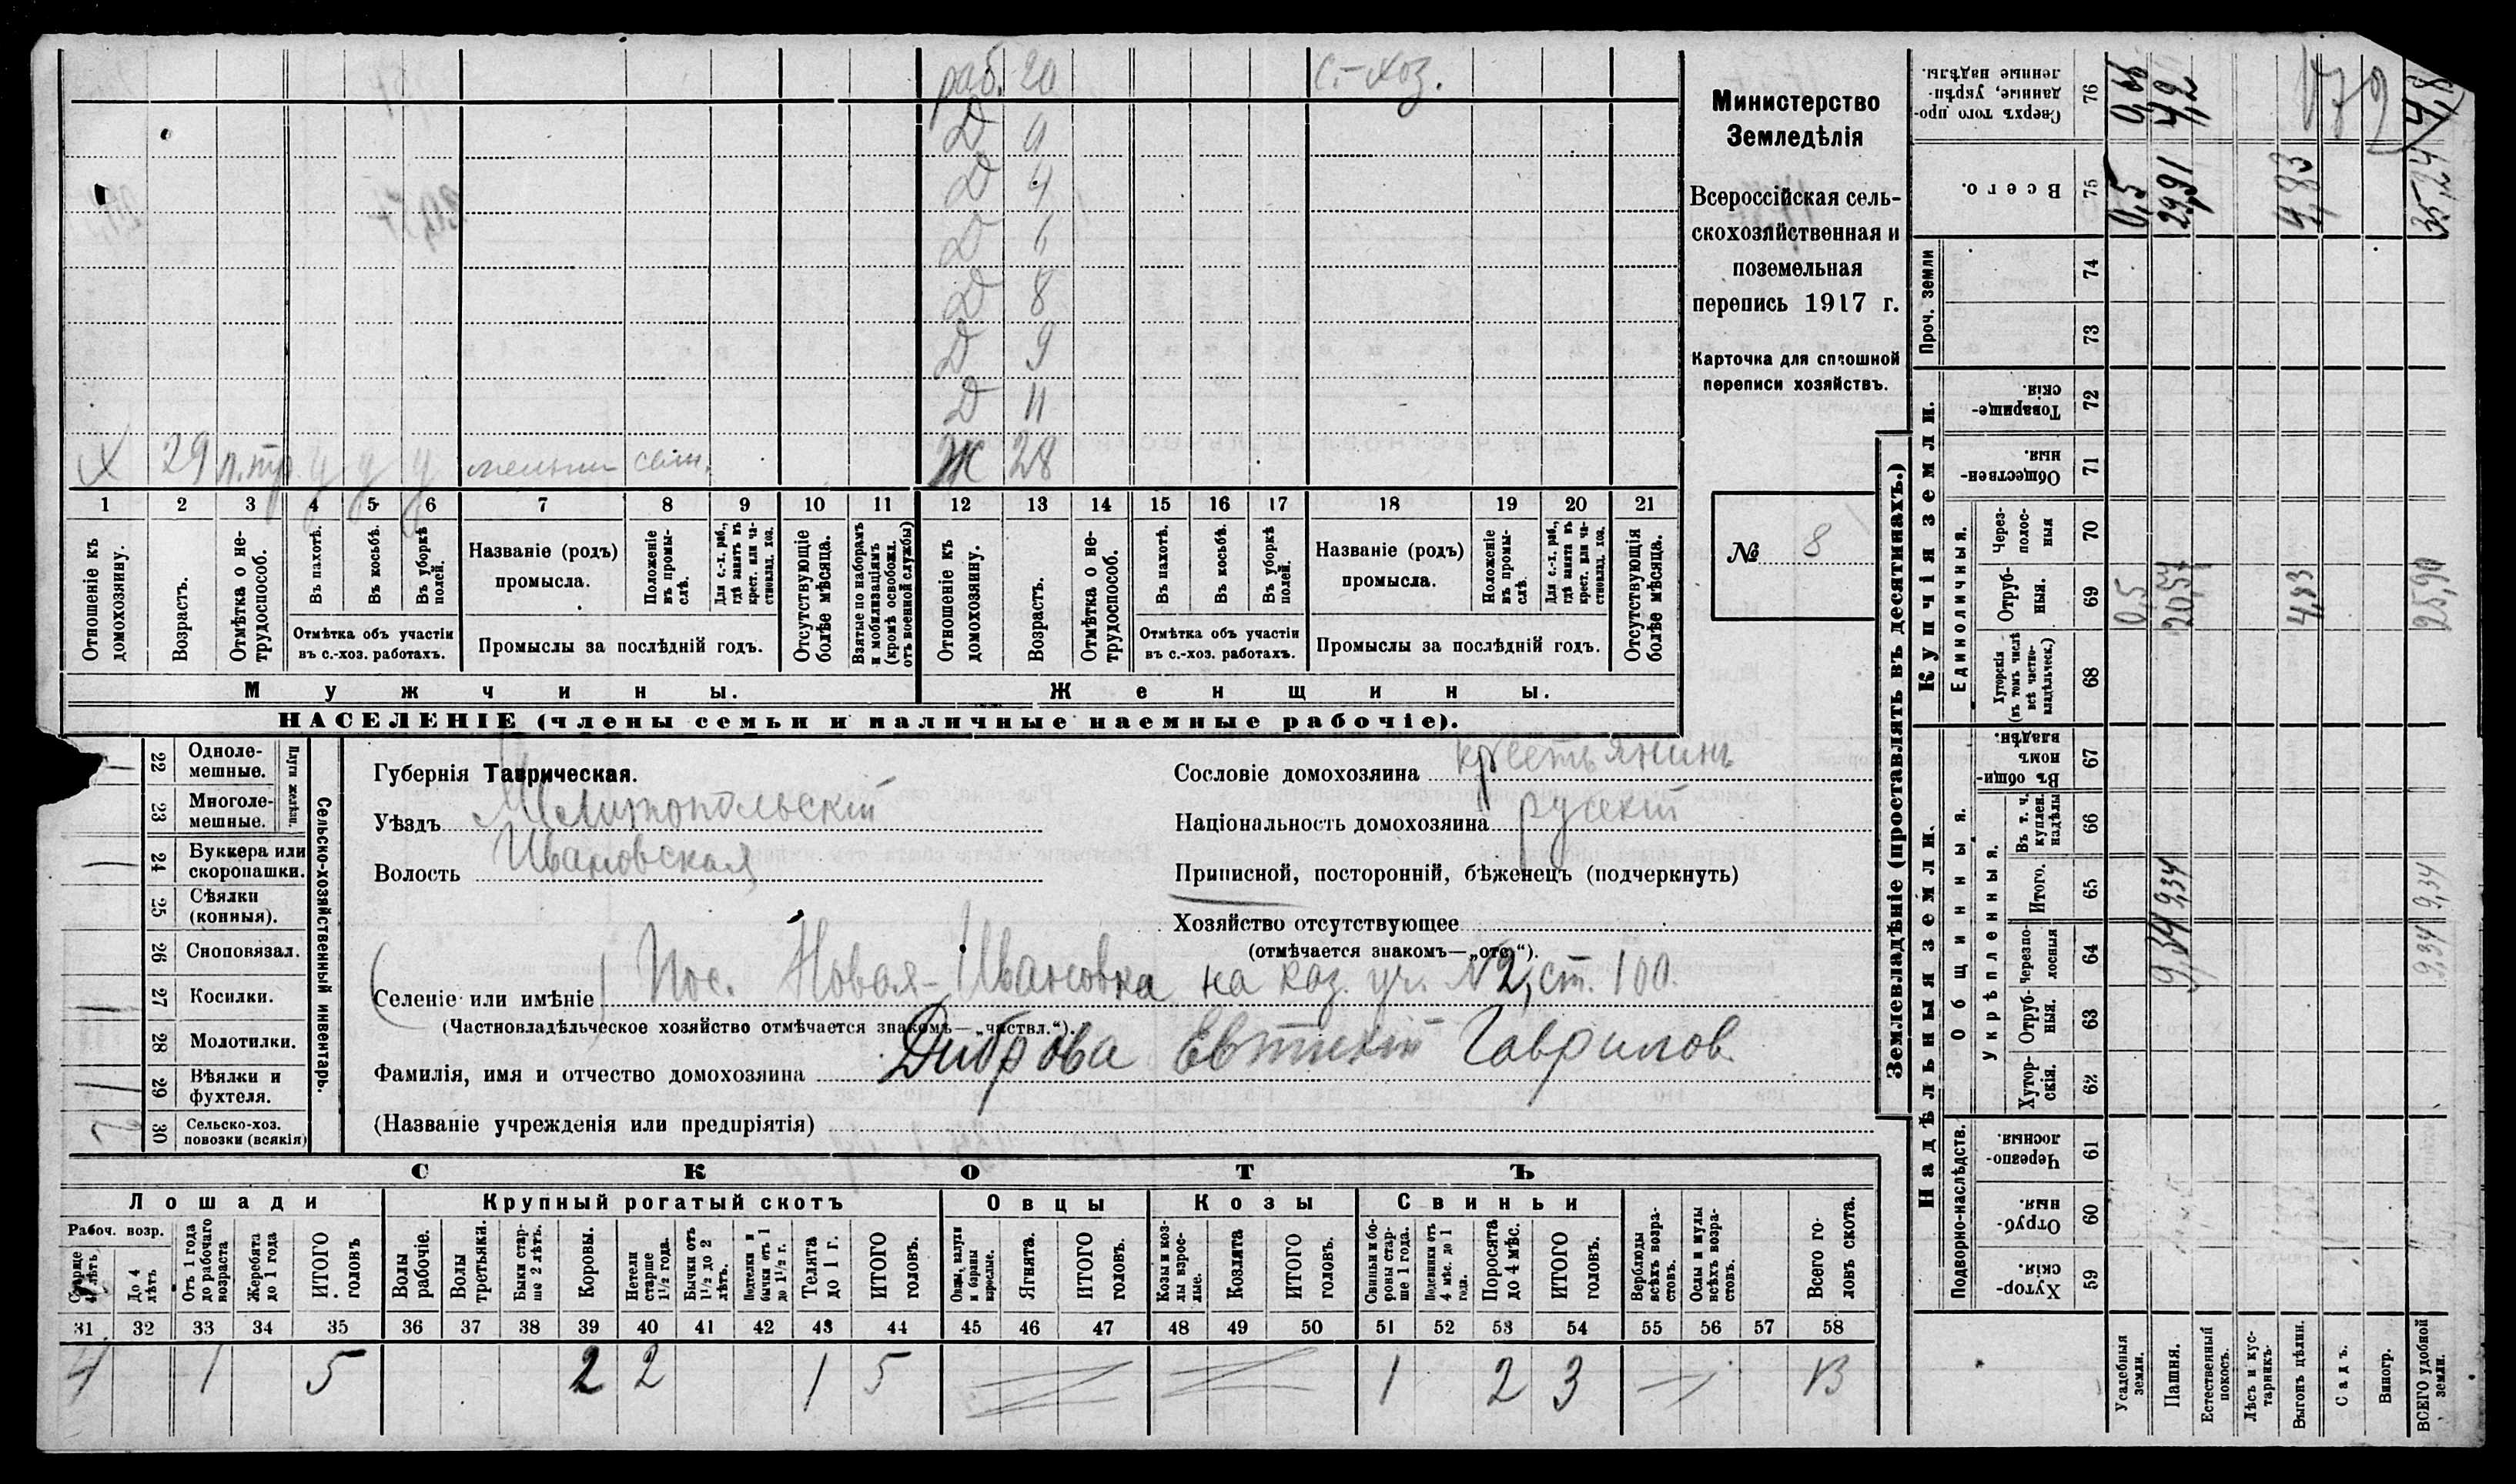 раб. 20 с.-хоз.
Д 9
Д 4
Д 6
Д 8
Д 9
Д 11
Х 29 п.тр. у у у Ж 28
1 2 3 4 5 6 7 8 9 10 11 12 13 14 15 16 17 18 19 20 21
Отношеніе къ домохозяину.
Возрастъ.
Отмѣтка о не-трудоспособ.
Въ пахотѣ.
Въ косьбѣ.
Въ уборкѣ полей.
Отмѣтка объ участіи
въ с.-хоз. работахъ.
Названіе (родъ)
промысла.
Положеніе въ промы-слѣ.
Для с.-х. раб., гдѣ занятъ въ крест. или ча-стновлад. хоз.
Промыслы за послѣдній годъ.
Отсутствующіе болѣе мѣсяца.
Взятые по наборамъ и мобилизаціямъ (кромѣ освобожд. отъ военной службы)
Отношеніе къ домохозяину.
Возрастъ.
Отмѣтка о не-трудоспособ.
Въ пахотѣ.
Въ косьбѣ.
Въ уборкѣ полей.
Отмѣтка объ участіи
въ с.-хоз. работахъ.
Названіе (родъ)
промысла.
Положеніе въ промы-слѣ.
Для с.-х. раб., гдѣ занята въ крест. или ча-стновлад. хоз.
Промыслы за послѣдній годъ.
Отсутствующія болѣе мѣсяца.
Мужчины. Женщины.
НАСЕЛЕНІЕ (члены семьи и наличные наемные рабочіе).
Министерство
Земледѣлія
Всероссійская сель-
скохозяйственная и
поземельная
перепись 1917 г.
Карточка для сплошной
переписи хозяйствъ.
№ 8
22 Одноле-мешные.
23 Многоле-мешные.
Плуги желѣзн.
24 Буккера или скоропашки.
25 Сѣялки (конныя).
26 Сноповязал.
27 Косилки.
28 Молотилки.
29 Вѣялки и фухтеля.
30 Сельско-хоз. повозки (всякія)
Сельско-хозяйственный инвентарь.
Губернія Таврическая.
Уѣздъ Мелитопольскій
Волость Ивановская
Сословіе домохозяина крестьянинъ
Національность домохозяина русскій
Приписной, посторонній, бѣженецъ (подчеркнуть)
Хозяйство отсутствующее
(отмѣчается знакомъ—„отс“).
(Селеніе или имѣніе) Пос. Новая-Ивановка на каз. уч. №2, ст. 100.
(Частновладѣльческое хозяйство отмѣчается знакомъ—„частвл.“).
Фамилія, имя и отчество домохозяина Диброва Евтихій Гаврилов.
(Названіе учрежденія или предпріятія)
СКОТЪ
Лошади Крупный рогатый скотъ Овцы Козы Свиньи
Рабоч. возр.
Старше 4 лѣтъ.
До 4 лѣтъ
Отъ 1 года до рабочаго возраста
Жеребята до 1 года
ИТОГО головъ
Волы рабочіе.
Волы третьяки.
Быки стар-ше 2 лѣтъ.
Коровы.
Нетели старше 1½ года.
Бычки отъ 1½ до 2 лѣтъ.
Подтелки и бычки отъ 1 до 1½ г.
Телята до 1 г.
ИТОГО головъ.
Овцы, валухи и бараны взрослые.
Ягнята.
ИТОГО головъ.
Козы и коз-лы взрос-лые.
Козлята
ИТОГО головъ.
Свиньи и бо-ровы стар-ше 1 года.
Подсвинки отъ 4 мѣс. до 1 года.
Поросята до 4 мѣс.
ИТОГО головъ.
Верблюды всѣхъ возра-стовъ.
Ослы и мулы всѣхъ возра-стовъ.
Всего го-ловъ скота.
31 32 33 34 35 36 37 38 39 40 41 42 43 44 45 46 47 48 49 50 51 52 53 54 55 56 57 58
4 1 5 2 2 1 5 1 2 3 13
Землевладѣніе (проставлять въ десятинахъ.)
Надѣльныя земли. Купчія земли. Проч. земли
Подворно-наслѣдств. Общинныя. Единоличныя.
Укрѣпленныя.
59 Хутор-скія.
60 Отруб-ныя.
61 Черезпо-лосныя.
62 Хутор-скія.
63 Отруб-ныя.
64 Черезпо-лосныя
65 Итого.
66 Въ т. ч. куплен. надѣлы
67 Въ общи-номъ владѣн.
68 Хуторскія (въ томъ числѣ всѣ частно-владѣльческ.)
69 Отруб-ныя.
70 Через-полос-ныя
71 Обществен-ныя.
72 Товарище-скія.
73
74
75 Всего.
76 Сверхъ того про-данные, укрѣп-ленные надѣлы.
Усадебныя земли. 0,5 0,5 0,66
Пашня. 9,34 9,34 20,57 29,91 4,2
Естественный покосъ.
Лѣсъ и кус-тарникъ.
Выгонъ цѣлин. 4,83 4,83
Садъ.
Виногр.
ВСЕГО удобной земли. 9,34 9,34 25,90 35,24 4,8
179